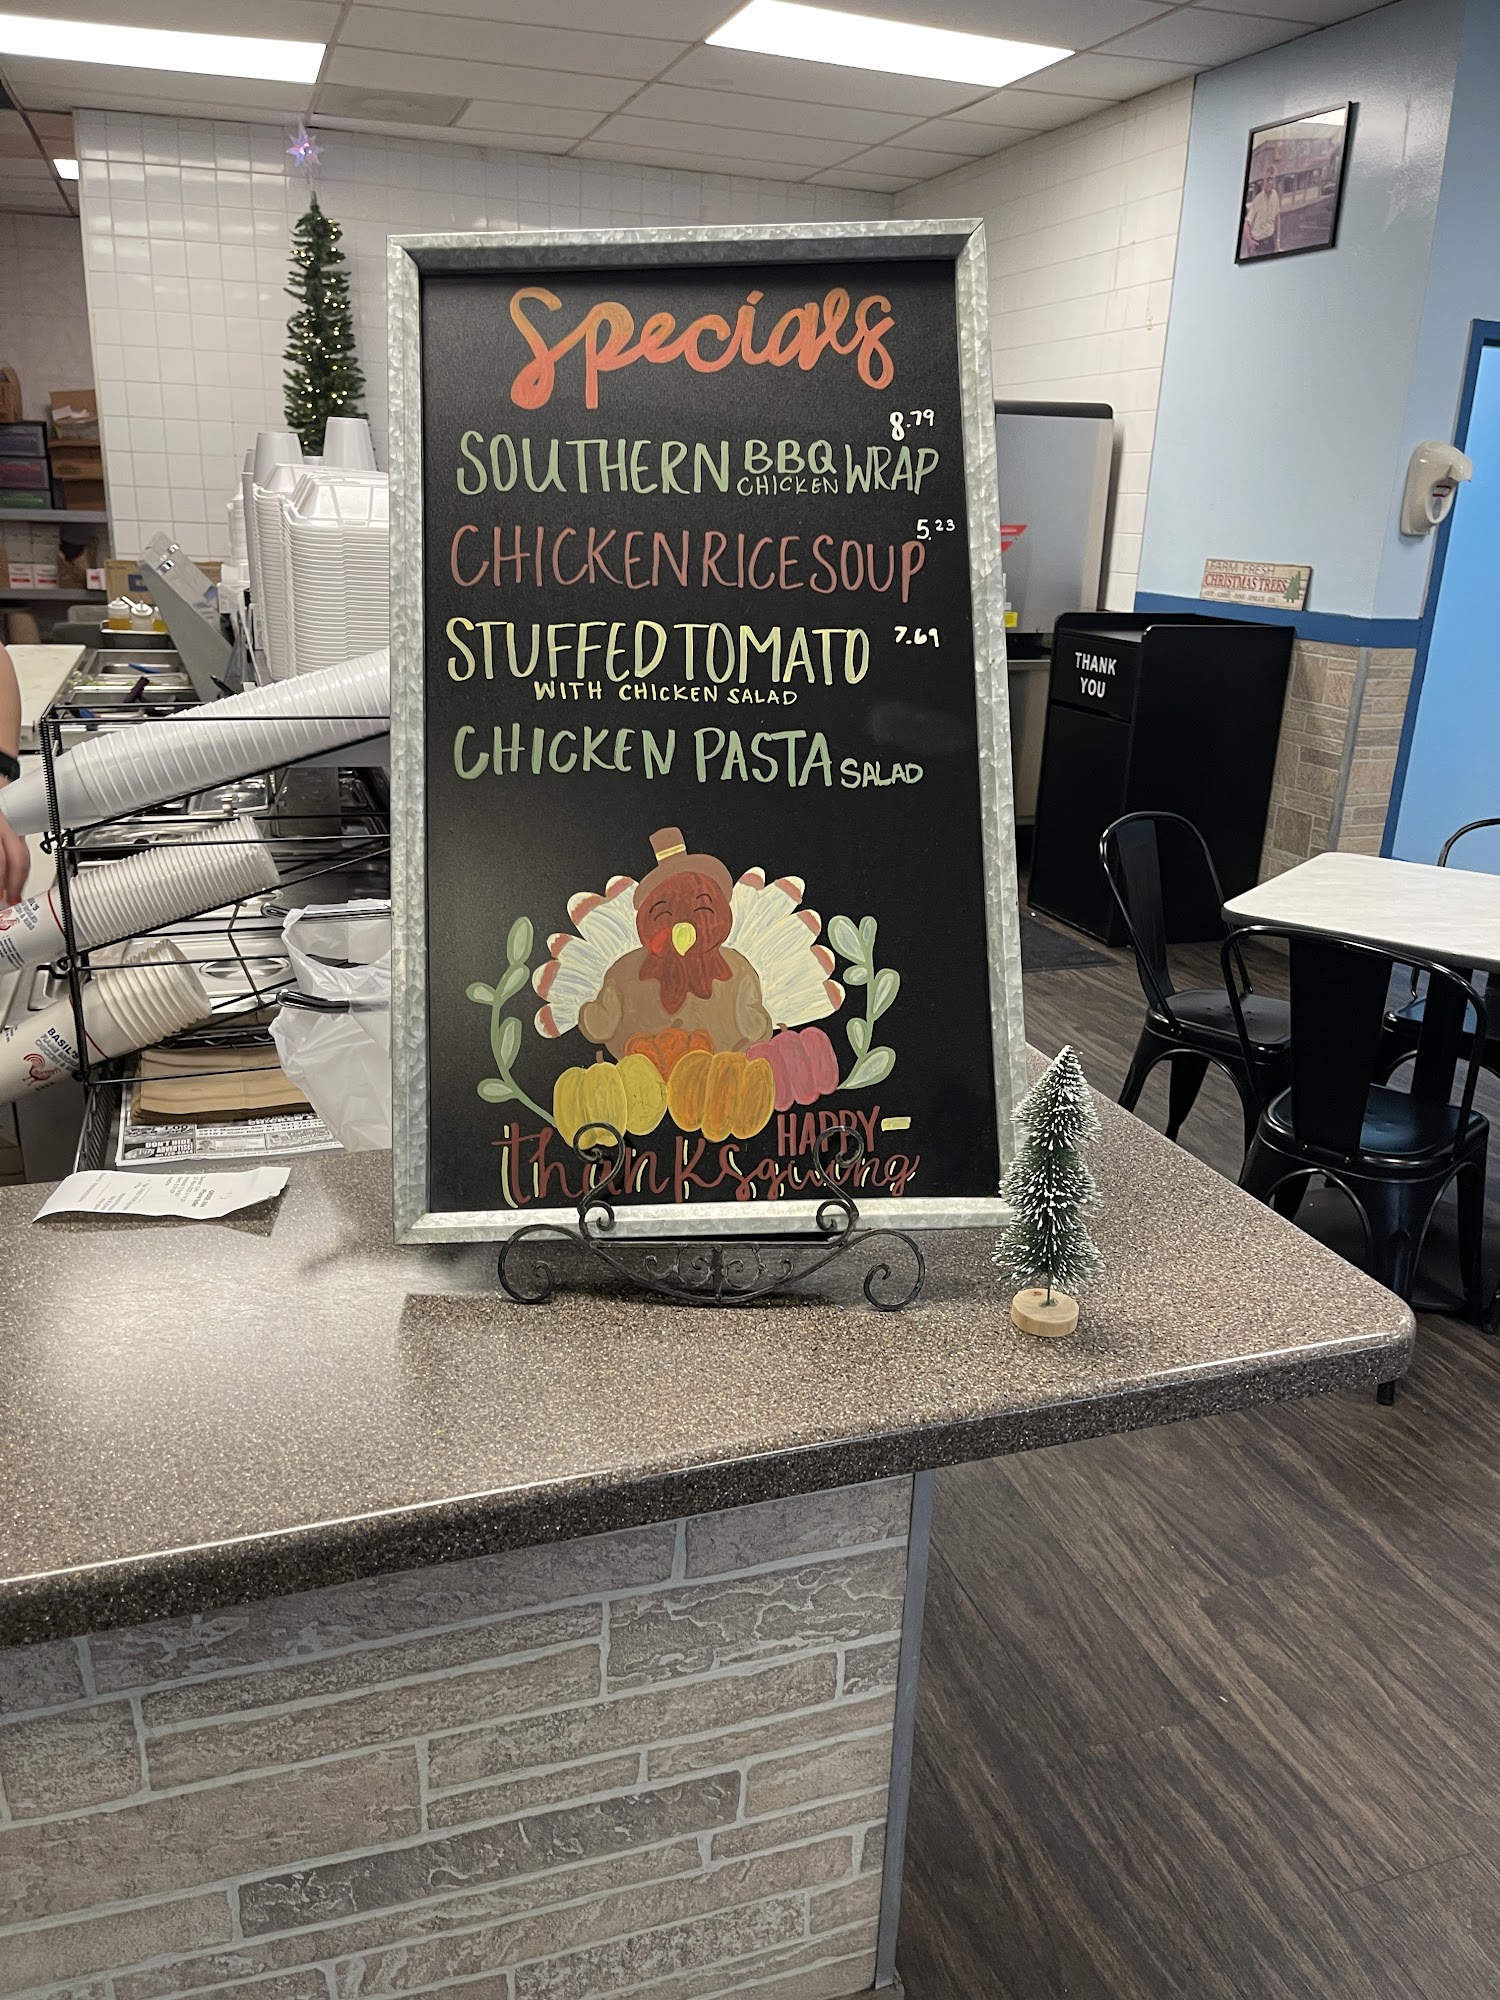 Specials
8.79
SOUTHERN BBQ CHICKEN WRAP
5.23
CHICKEN RICE SOUP
STUFFED TOMATO 7.69
WITH CHICKEN SALAD
CHICKEN PASTA SALAD
HAPPY
thanksgiving
THANK
YOU
FARM FRESH
CHRISTMAS TREES
BASIL'S
DON'T HIDE,
ADVERTISE!